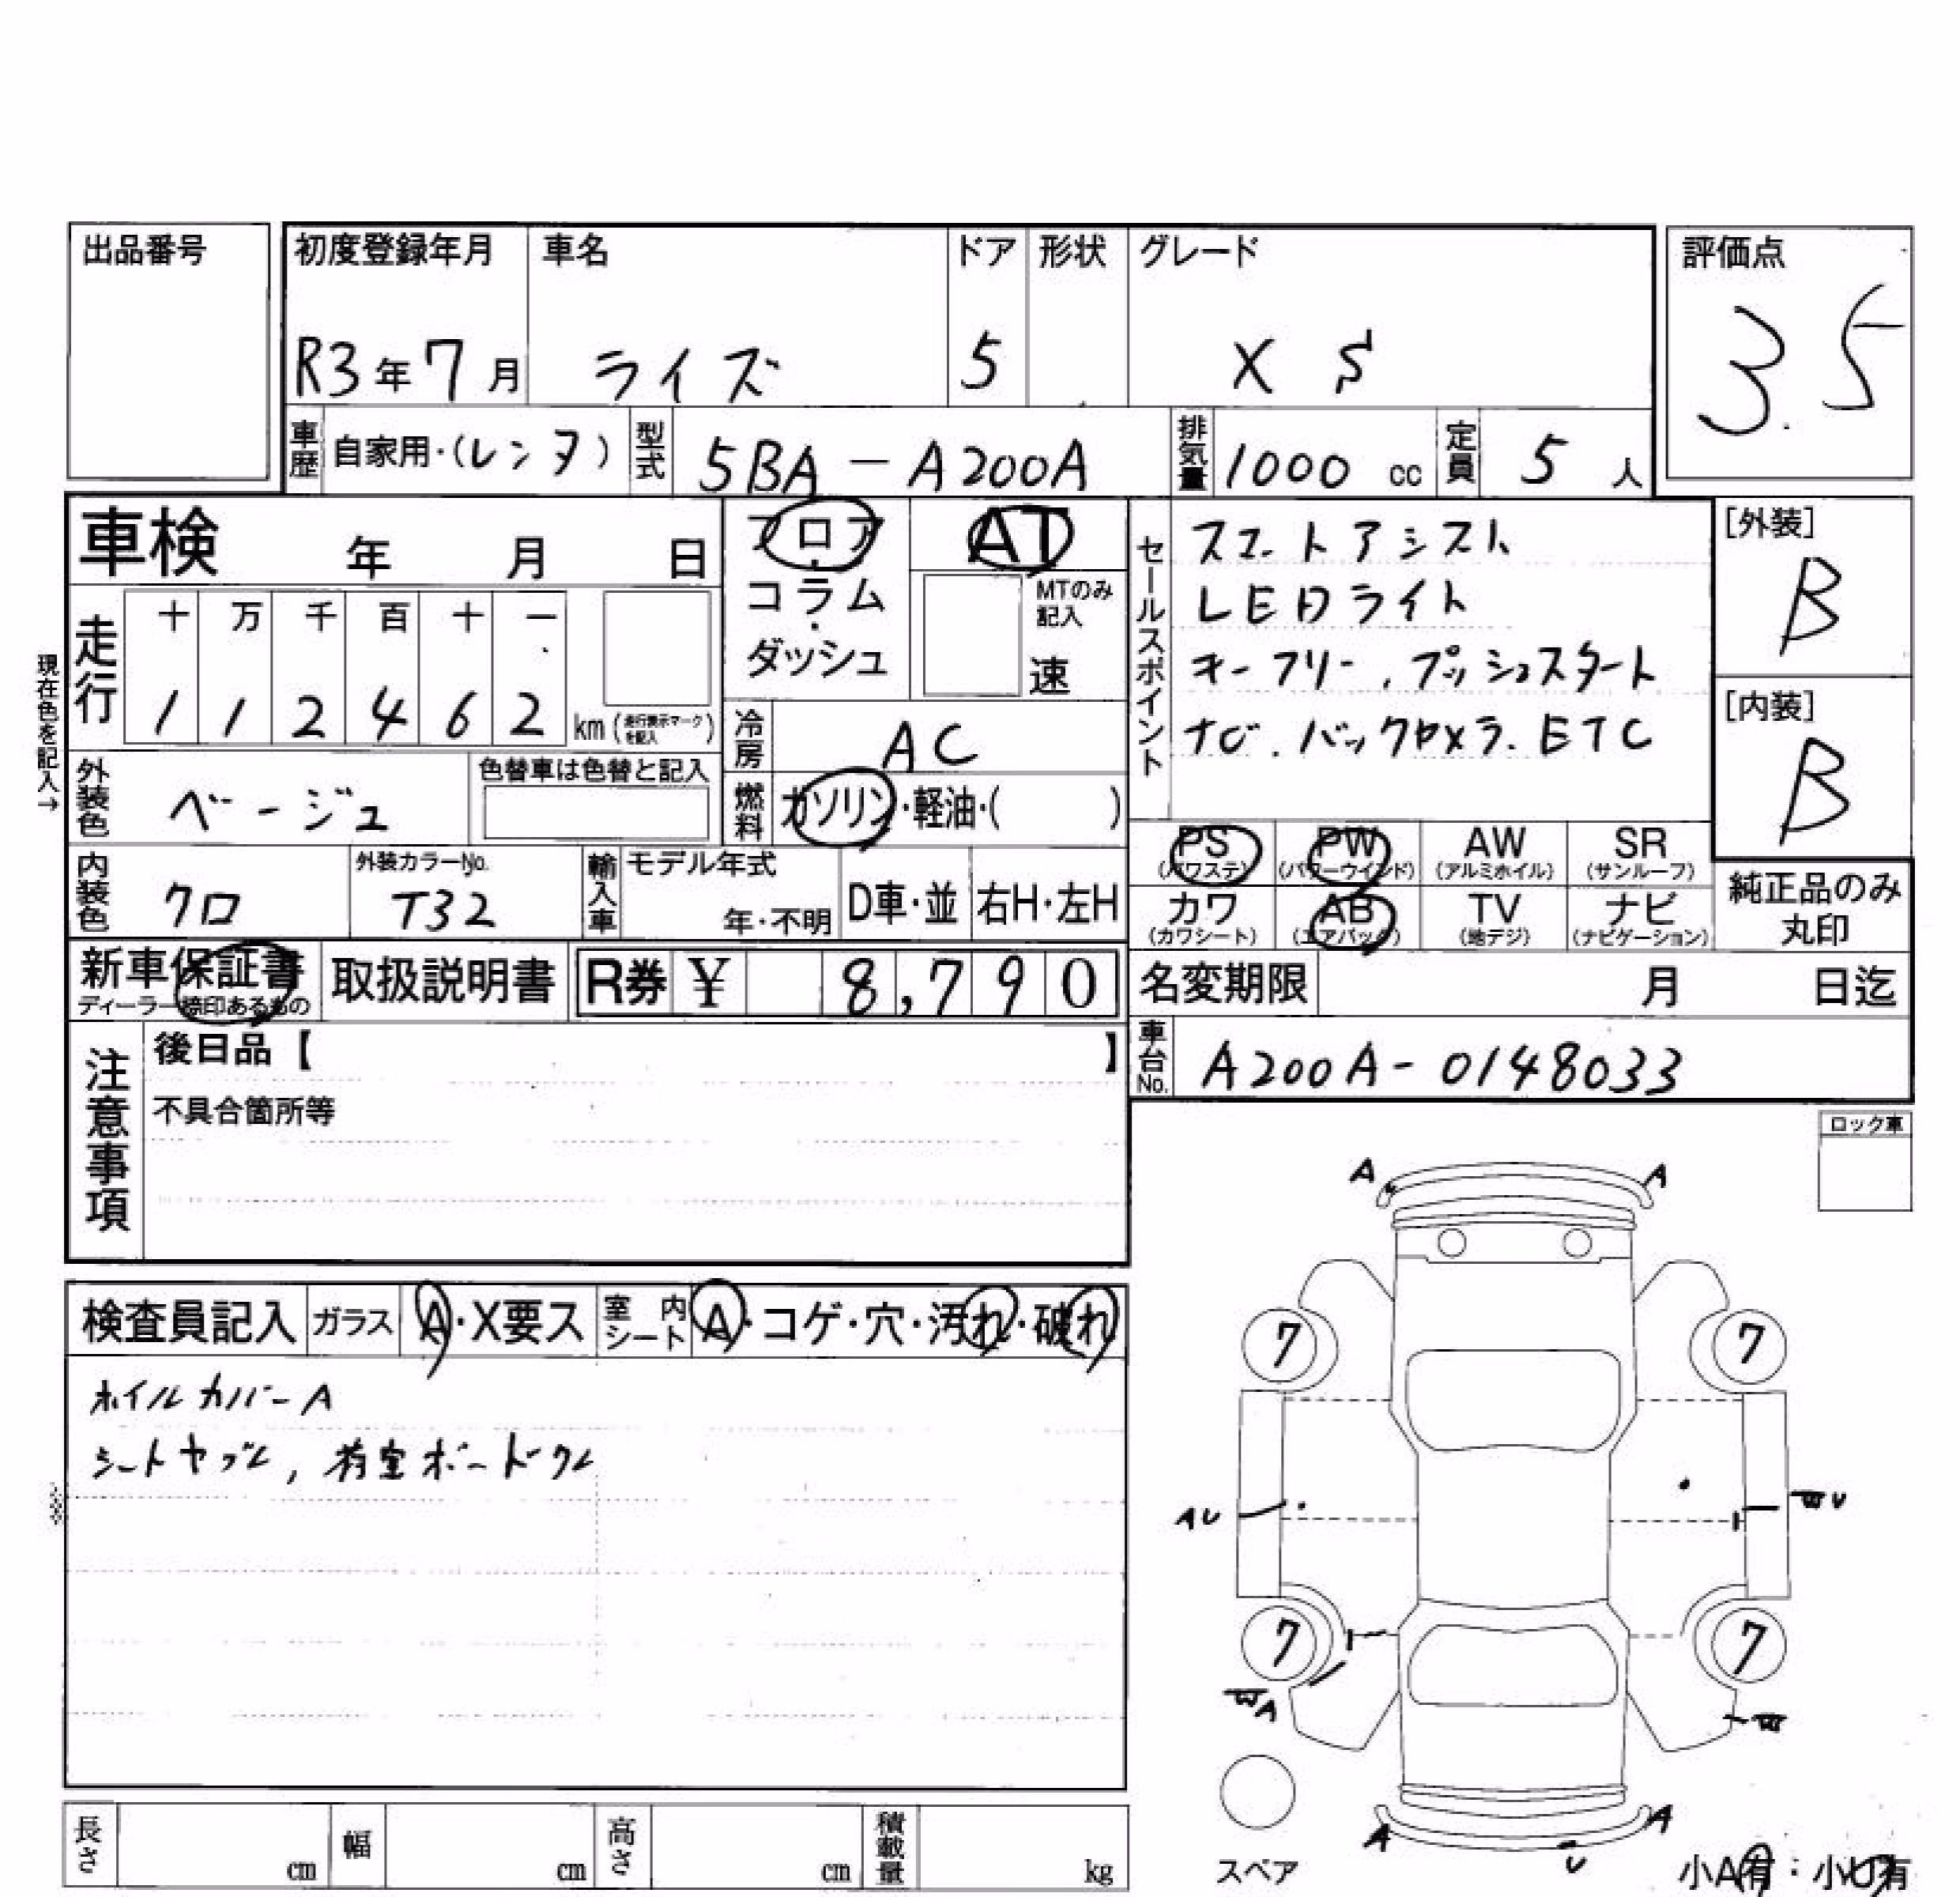 出品番号
初度登録年月 車名 ドア 形状 グレード 評価点
R3年7月 ライズ 5 XS 3.5
車歴 自家用・(レンタ) 型式 5BA-A200A 排気量 1000 cc 定員 5 人
車検 年 月 日
フロア・コラム・ダッシュ
AT
MTのみ記入
速
セールスポイント
スマートアシスト
LEDライト
キーフリー、プッシュスタート
ナビ、バックカメラ、ETC
[外装]
B
[内装]
B
現在色を記入→
走行 十 万 千 百 十 一
1 1 2 4 6 2 km (走行表示マークを記入)
冷房 AC
外装色 ベージュ 色替車は色替と記入
燃料 ガソリン・軽油・( )
PS (パワステ) PW (パワーウインド) AW (アルミホイル) SR (サンルーフ)
カワ (カワシート) AB (エアバック) TV (地デジ) ナビ (ナビゲーション)
純正品のみ
丸印
内装色 クロ 外装カラーNo. T32 輸入車 モデル年式 年・不明 D車・並 右H・左H
新車保証書 取扱説明書 R券 ¥ 8,790
ディーラー捺印あるもの
名変期限 月 日迄
車台No. A200A-0148033
注意事項
後日品【 】
不具合箇所等
ロック車
検査員記入 ガラス A・X要ス 室内シート A・コゲ・穴・汚れ・破れ
ホイルカバーA
シートヤブレ, 荷室ボードワレ
A A
7 7
AU WU
7 7
WA W
A A
U
スペア
小A有:小U有
長さ cm 幅 cm 高さ cm 積載量 kg